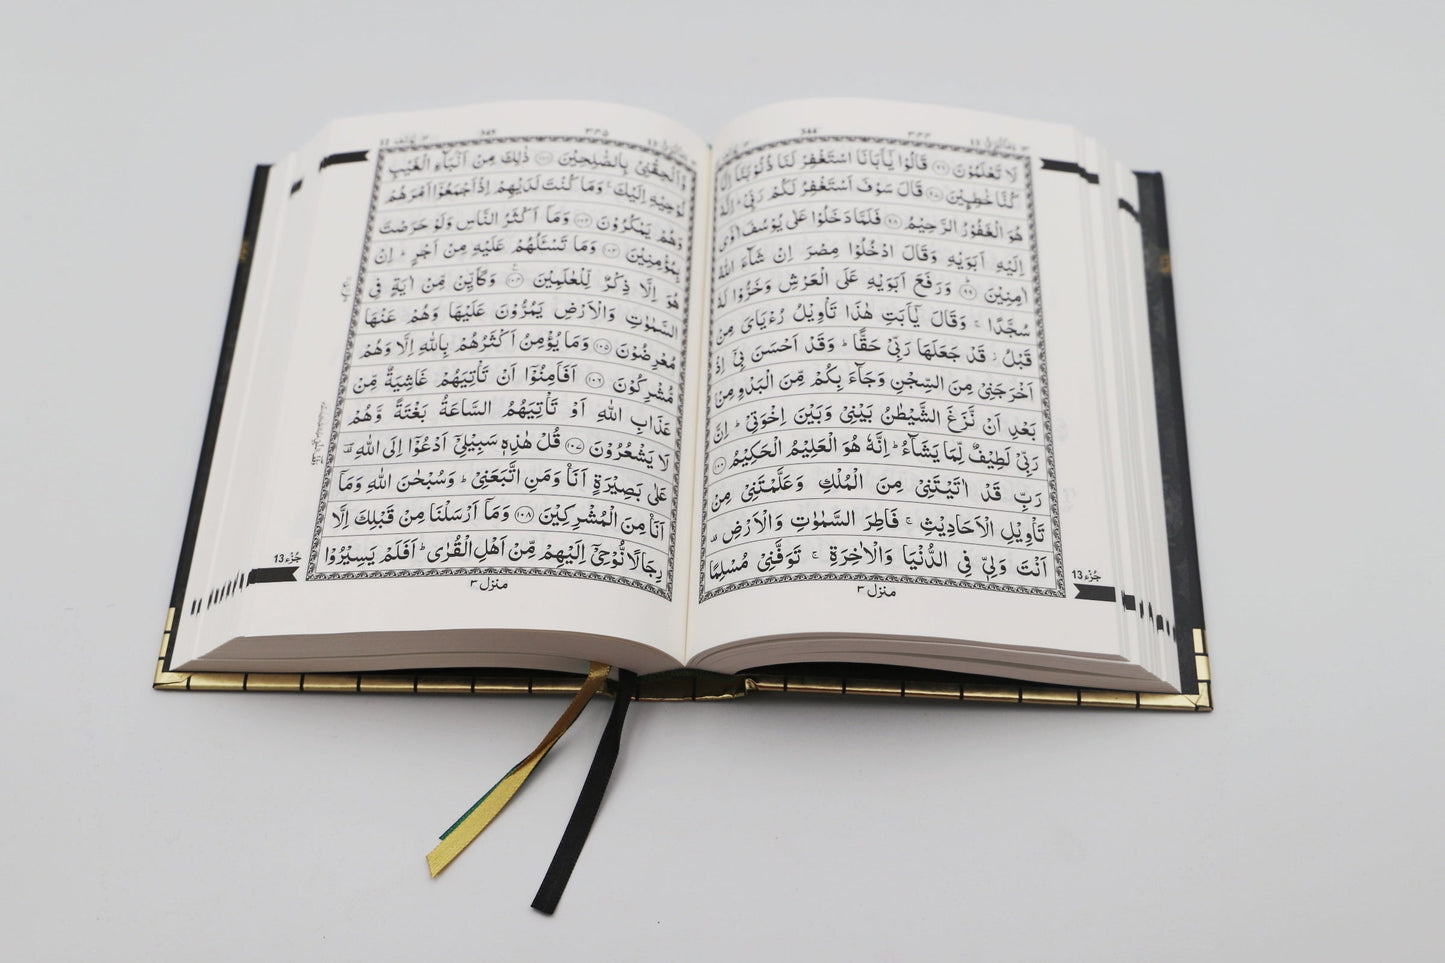 لَا تَعْلَمُوْنَ ﴿۹۶﴾ قَالُوْا يٰۤاَبَانَا اسْتَغْفِرْ لَنَا ذُنُوْبَنَاۤ اِنَّا
كُنَّا خٰطِـِٕيْنَ ﴿۹۷﴾ قَالَ سَوْفَ اَسْتَغْفِرُ لَكُمْ رَبِّيْ ؕ اِنَّهٗ
هُوَ الْغَفُوْرُ الرَّحِيْمُ ﴿۹۸﴾ فَلَمَّا دَخَلُوْا عَلٰى يُوْسُفَ اٰوٰۤى
اِلَيْهِ اَبَوَيْهِ وَقَالَ ادْخُلُوْا مِصْرَ اِنْ شَآءَ اللّٰهُ
اٰمِنِيْنَ ﴿۹۹﴾ وَرَفَعَ اَبَوَيْهِ عَلَى الْعَرْشِ وَخَرُّوْا لَهٗ
سُجَّدًا ۚ وَقَالَ يٰۤاَبَتِ هٰذَا تَاْوِيْلُ رُءْيَايَ مِنْ
قَبْلُ ؗ قَدْ جَعَلَهَا رَبِّيْ حَقًّا ؕ وَقَدْ اَحْسَنَ بِيْۤ اِذْ
اَخْرَجَنِيْ مِنَ السِّجْنِ وَجَآءَ بِكُمْ مِّنَ الْبَدْوِ مِنْۢ
بَعْدِ اَنْ نَّزَغَ الشَّيْطٰنُ بَيْنِيْ وَبَيْنَ اِخْوَتِيْ ؕ اِنَّ
رَبِّيْ لَطِيْفٌ لِّمَا يَشَآءُ ؕ اِنَّهٗ هُوَ الْعَلِيْمُ الْحَكِيْمُ ﴿۱۰۰﴾
رَبِّ قَدْ اٰتَيْتَنِيْ مِنَ الْمُلْكِ وَعَلَّمْتَنِيْ مِنْ
تَاْوِيْلِ الْاَحَادِيْثِ ۚ فَاطِرَ السَّمٰوٰتِ وَالْاَرْضِ ۫
اَنْتَ وَلِيّٖ فِي الدُّنْيَا وَالْاٰخِرَةِ ۚ تَوَفَّنِيْ مُسْلِمًا
منزل ۳
جُزْء 13
وَّاَلْحِقْنِيْ بِالصّٰلِحِيْنَ ﴿۱۰۱﴾ ذٰلِكَ مِنْ اَنْۢبَآءِ الْغَيْبِ
نُوْحِيْهِ اِلَيْكَ ۚ وَمَا كُنْتَ لَدَيْهِمْ اِذْ اَجْمَعُوْۤا اَمْرَهُمْ
وَهُمْ يَمْكُرُوْنَ ﴿۱۰۲﴾ وَمَاۤ اَكْثَرُ النَّاسِ وَلَوْ حَرَصْتَ
بِمُؤْمِنِيْنَ ﴿۱۰۳﴾ وَمَا تَسْـَٔلُهُمْ عَلَيْهِ مِنْ اَجْرٍ ؕ اِنْ
هُوَ اِلَّا ذِكْرٌ لِّلْعٰلَمِيْنَ ﴿۱۰۴﴾ وَكَاَيِّنْ مِّنْ اٰيَةٍ فِي
السَّمٰوٰتِ وَالْاَرْضِ يَمُرُّوْنَ عَلَيْهَا وَهُمْ عَنْهَا
مُعْرِضُوْنَ ﴿۱۰۵﴾ وَمَا يُؤْمِنُ اَكْثَرُهُمْ بِاللّٰهِ اِلَّا وَهُمْ
مُّشْرِكُوْنَ ﴿۱۰۶﴾ اَفَاَمِنُوْۤا اَنْ تَاْتِيَهُمْ غَاشِيَةٌ مِّنْ
عَذَابِ اللّٰهِ اَوْ تَاْتِيَهُمُ السَّاعَةُ بَغْتَةً وَّهُمْ
لَا يَشْعُرُوْنَ ﴿۱۰۷﴾ قُلْ هٰذِهٖ سَبِيْلِيْۤ اَدْعُوْۤا اِلَى اللّٰهِ
عَلٰى بَصِيْرَةٍ اَنَا وَمَنِ اتَّبَعَنِيْ ؕ وَسُبْحٰنَ اللّٰهِ وَمَاۤ
اَنَا مِنَ الْمُشْرِكِيْنَ ﴿۱۰۸﴾ وَمَاۤ اَرْسَلْنَا مِنْ قَبْلِكَ اِلَّا
رِجَالًا نُّوْحِيْۤ اِلَيْهِمْ مِّنْ اَهْلِ الْقُرٰى ؕ اَفَلَمْ يَسِيْرُوْا
منزل ۳
جُزْء 13